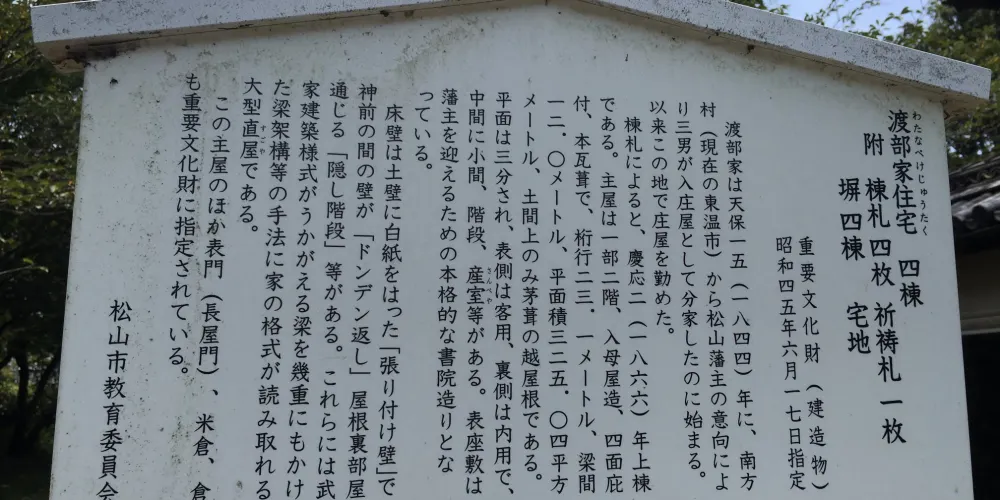 わたなべけじゅうたく
渡部家住宅　四棟
附　棟札四枚　祈祷札一枚
塀四棟　宅地
重要文化財（建造物）
昭和四五年六月一七日指定
渡部家は天保一五（一八四四）年に、南方
村（現在の東温市）から松山藩主の意向によ
り三男が入庄屋として分家したのに始まる。
以来この地で庄屋を勤めた。
棟札によると、慶応二（一八六六）年上棟
である。主屋は一部二階、入母屋造、四面庇
付、本瓦葺で、桁行二三．一メートル、梁間
一二．〇メートル、平面積三二五．〇四平方
メートル、土間上のみ茅葺の越屋根である。
平面は三分され、表側は客用、裏側は内用で、
中間に小間、階段、産室等がある。表座敷は
さんべや
藩主を迎えるための本格的な書院造りとな
っている。
床壁は土壁に白紙をはった「張り付け壁」で
神前の間の壁が「ドンデン返し」屋根裏部屋
通じる「隠し階段」等がある。これらには武
家建築様式がうかがえる梁を幾重にもかけ
た梁架構等の手法に家の格式が読み取れる
大型直屋である。
すごや
この主屋のほか表門（長屋門）、米倉、倉
も重要文化財に指定されている。
松山市教育委員会